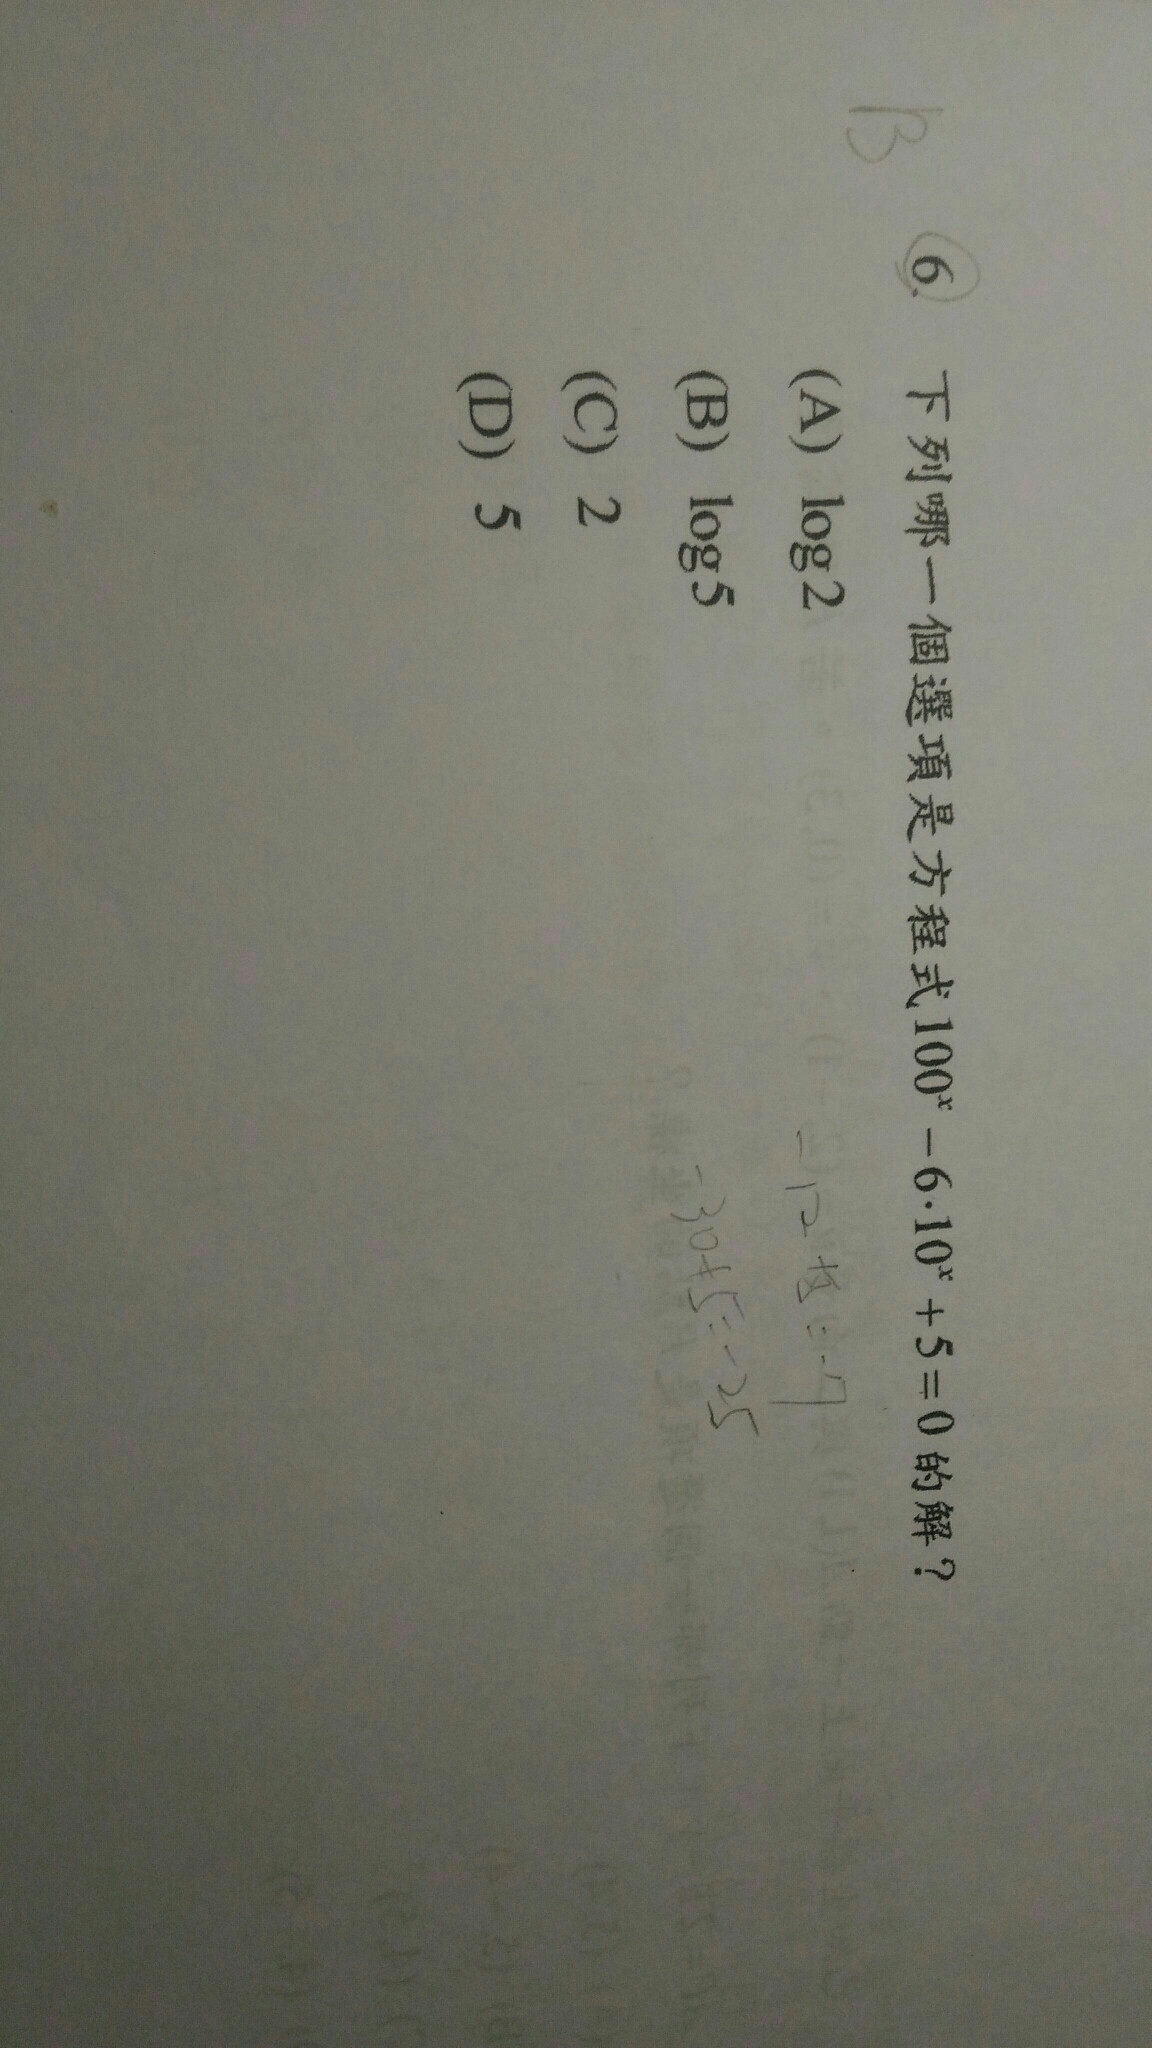 B
6. 下列哪一個選項是方程式100ˣ－6·10ˣ＋5＝0的解？
(A) log2
(B) log5
(C) 2
(D) 5
-30+5=-25